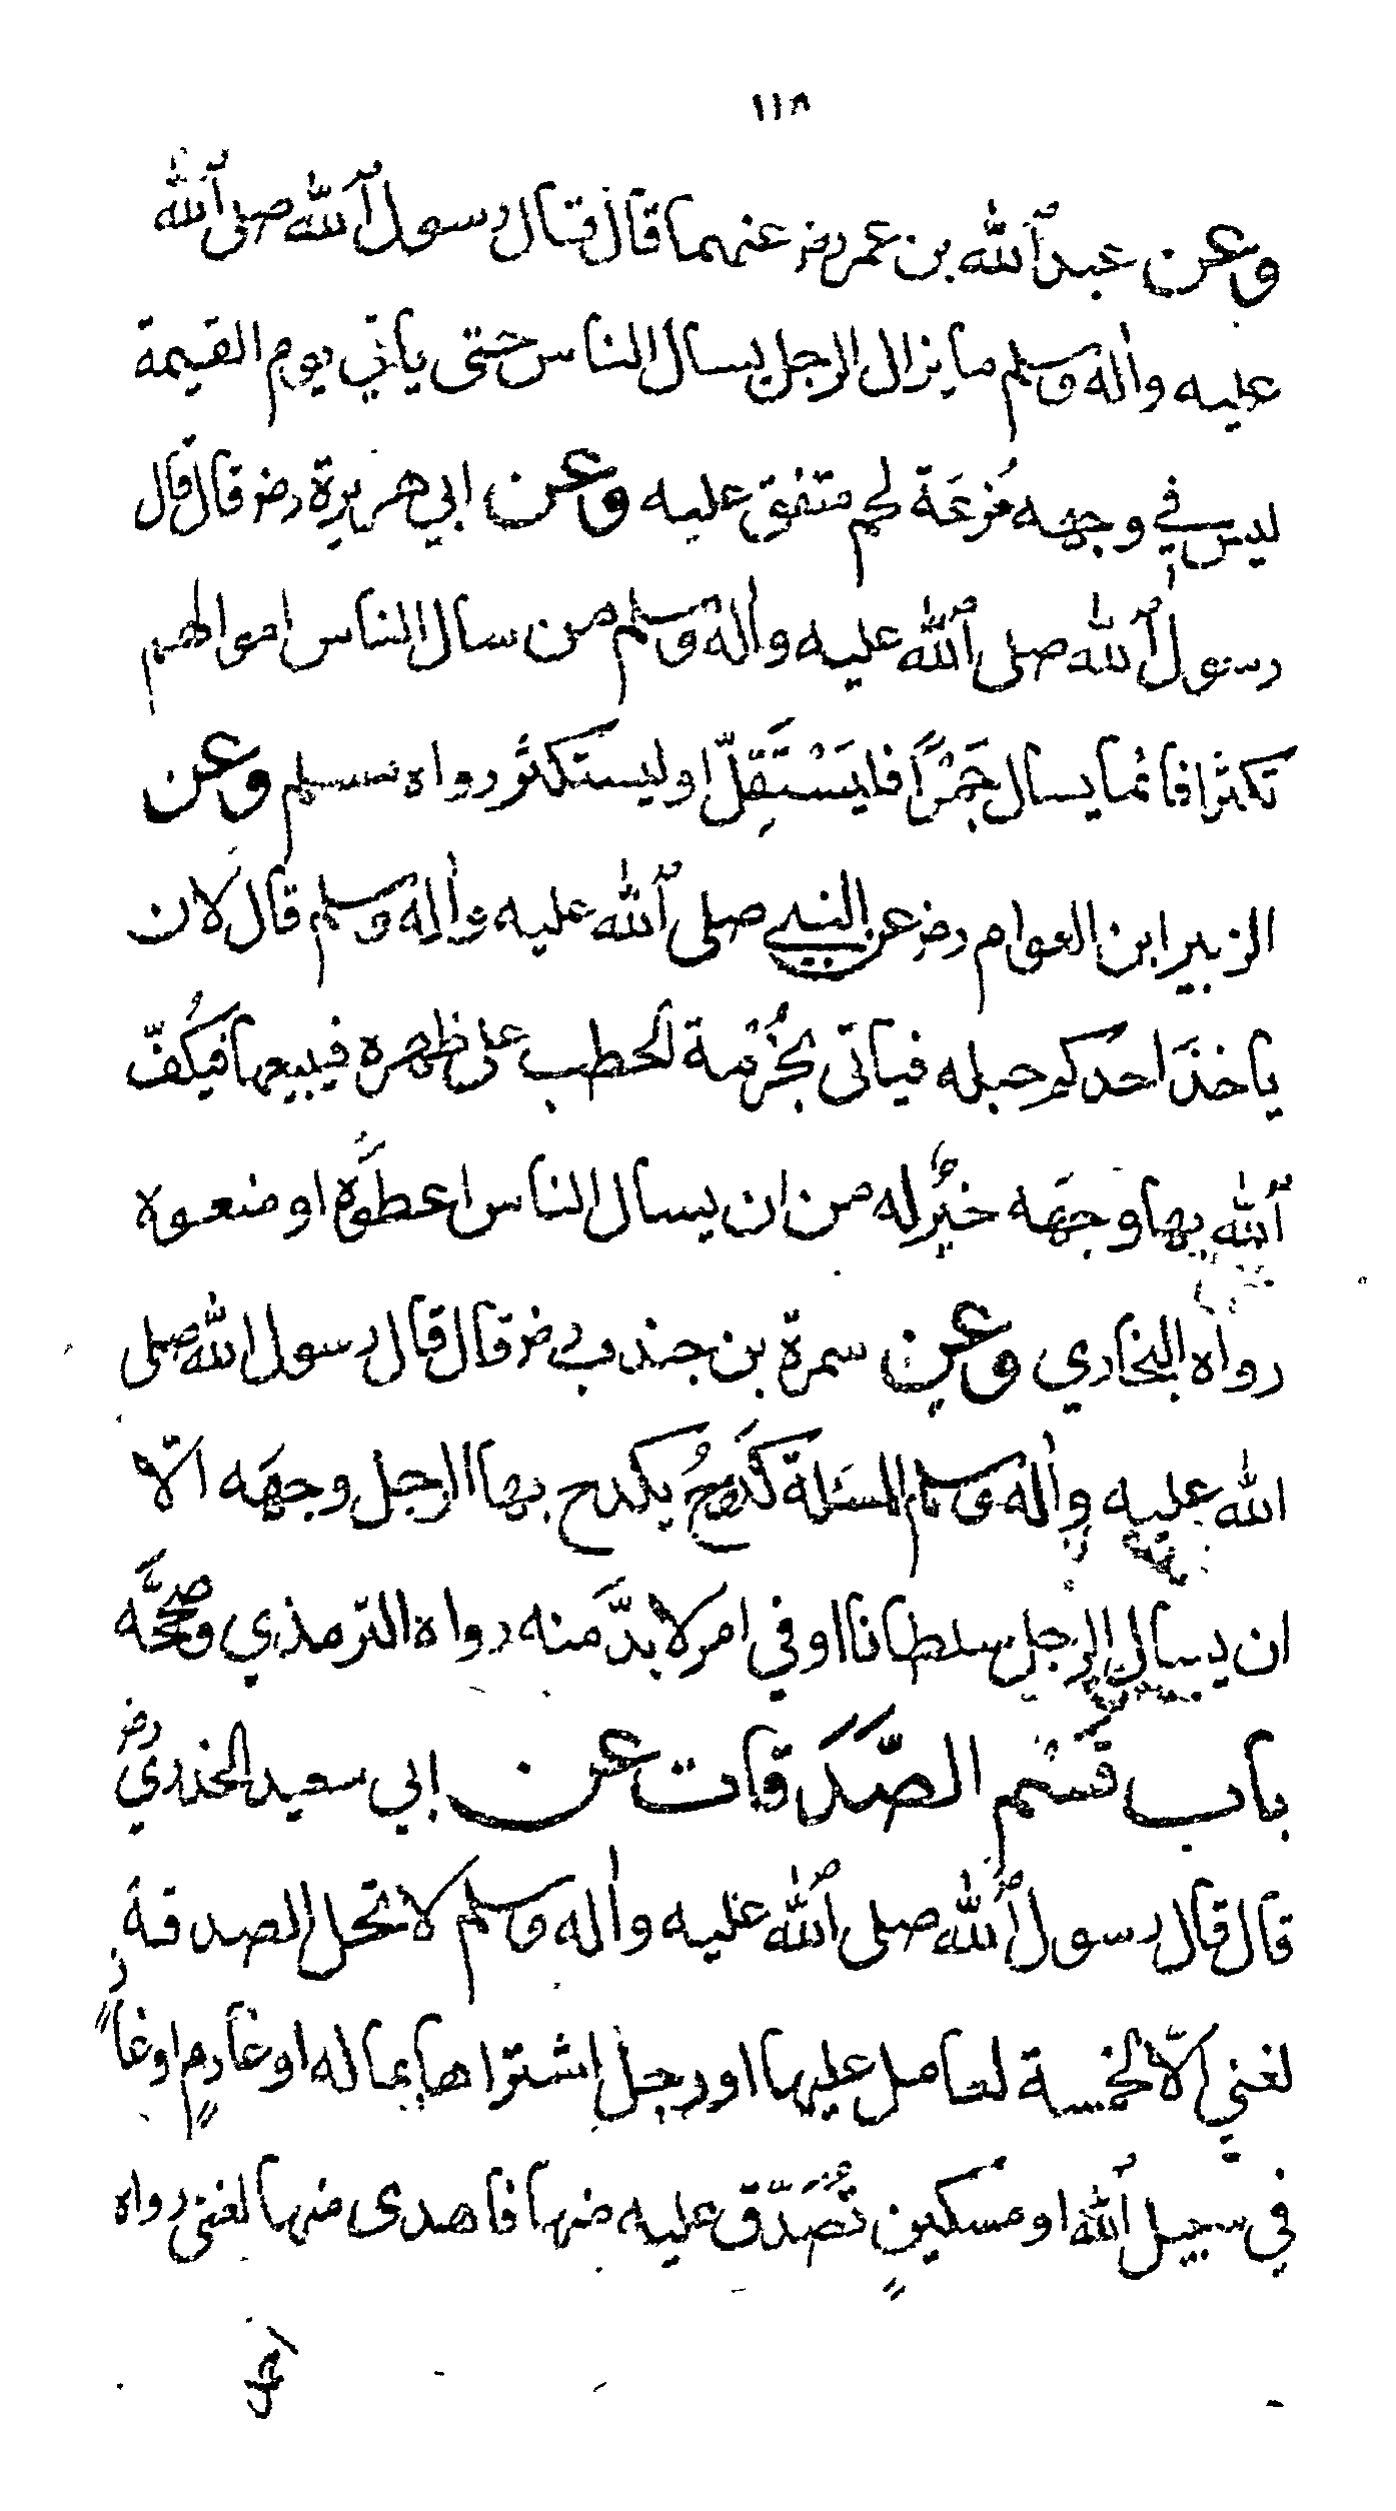 ١١٨
وعن عبد الله بن عمر رض عنهما قال قال رسول الله صلى الله
عليه واله وسلم ما يزال الرجل يسال الناس حتى ياتي يوم القيمة
ليس في وجهه مُزعَة لحم متفق عليه وعن ابي هريرة رض قال قال
رسول الله صلى الله عليه واله وسلم من سال الناس اموالهم
تكثرا فانما يسال جَمْرًا فليَسْتَقِلّ او ليستكثر رواه مسلم وعن
الزبير ابن العوام رض عن النبي صلى الله عليه واله وسلم قال لان
ياخذَ احدكم حبله فياتى بحُزْمة الحطب على ظهره فيبيعها فيكُفّ
الله بها وجهَه خيرٌ له من ان يسال الناس اعطَوْه او منعوه
رواه البخاري وعن سمرة بن جندب رض قال قال رسول الله صلى
الله عليه واله وسلم المسئلة كَدحٌ يكدح بها الرجل وجهَه الّا
ان يسال الرجل سلطانا او في امر لا بدَّ منه رواه الترمذي وصحّحَه
باب قَسْم الصَّدَقات عن ابي سعيد الخدريّ رض
قال قال رسول الله صلى الله عليه واله وسلم لا تحل الصدقة
لغني الّا لخمسة لعامل عليها او رجل اشتراها بماله او غارمٍ او غازٍ
في سبيل الله او مسكينٍ تُصُدّق عليه منها فاهدى منها لغنى رواه